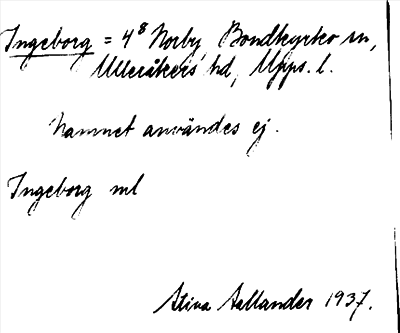 Ingeborg = 4⁸ Norby, Bondkyrko sn,
Ulleråkers hd, Upps. l.
Namnet användes ej.
Ingeborg ml
Stina Sallander 1937.